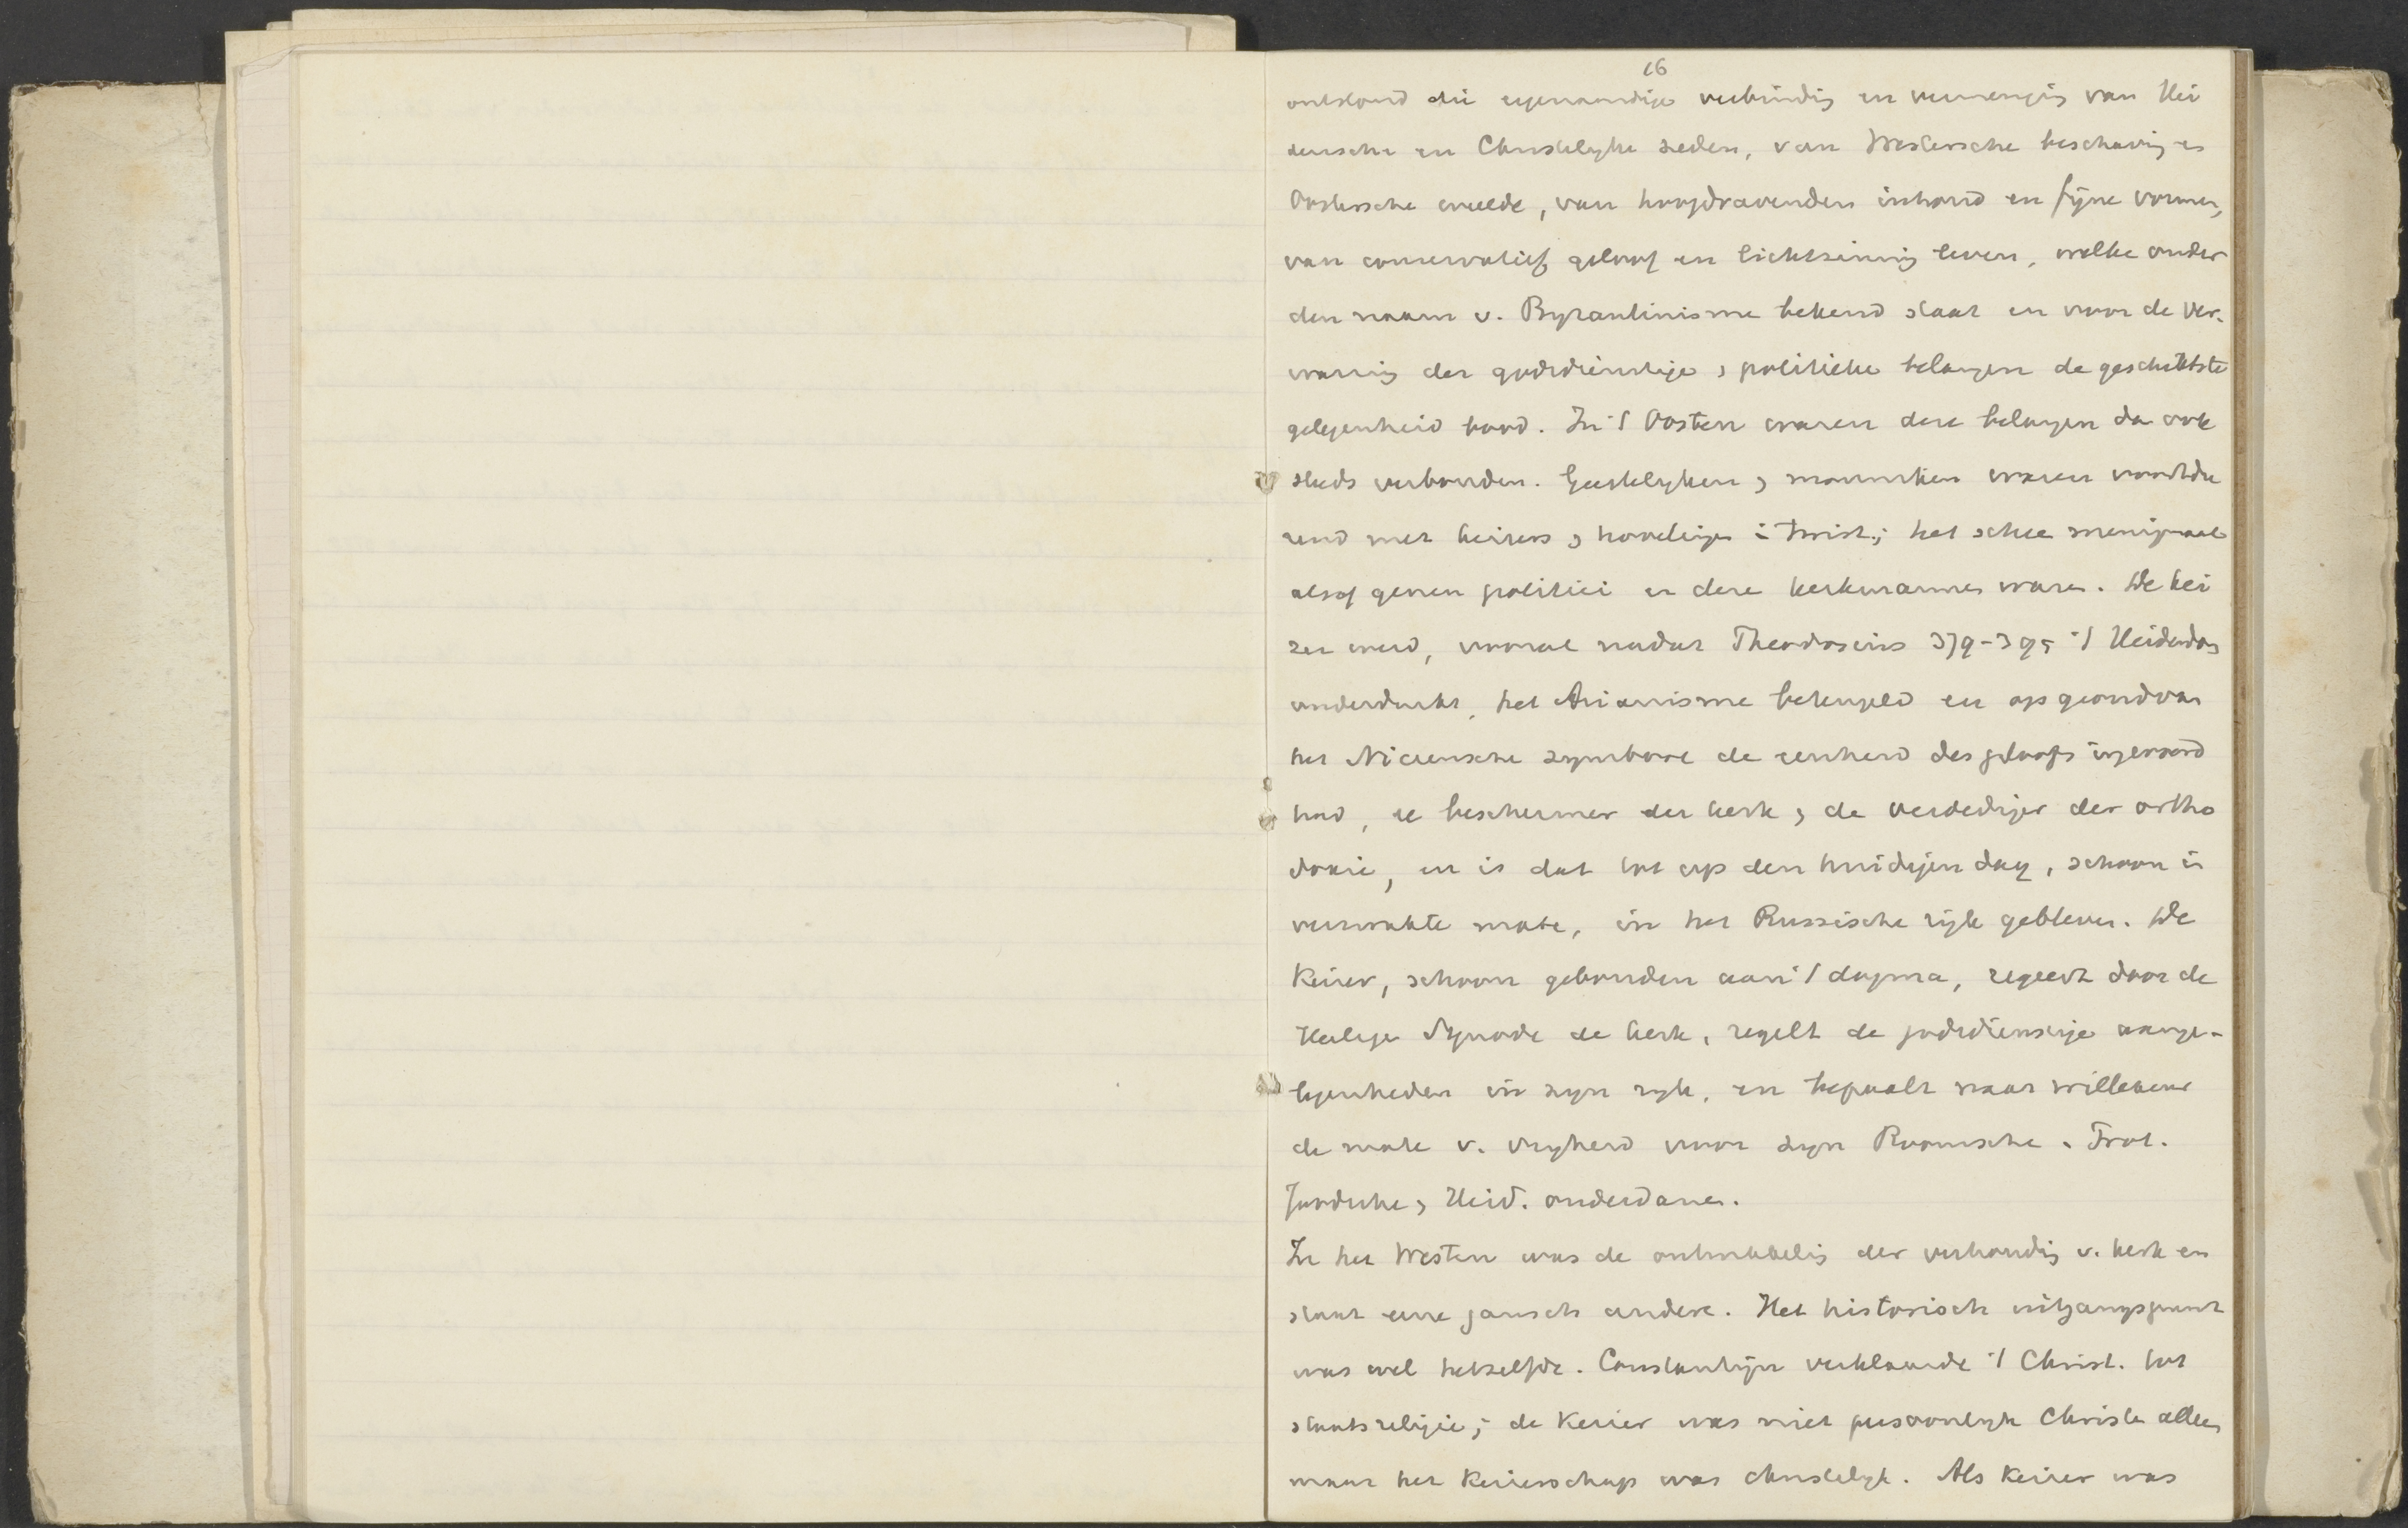 16
ontstond die eigenaardige verbindig en vermengig van Hei
densche en Christelyke zeden, van Westersche beschavig en
Oostersche weelde, van hoogdravenden inhoud en fijne vormen,
van conservatief geloof en lichtzinnig leven, welke onder
den naam v. Byzantinisme bekend staat en voor de ver-
warrig der godsdienstige , politieke belangen de geschiktste
gelegenheid bood. In 't Oosten waren deze belangen dan ook
steds verbonden. Geestelyken , monniken waren voortdu
rend met keizers , hovelinge i twist; het schee menigmaal
alsof genen politici en deze kerkmannen waren. De kei
zer werd, vooral nadat Theodosius 379-395 't Heidendom
onderdrukt, het Arianisme beteugeld en op grond van
het Niceensche symbool de eenheid des geloofs ingevoerd
had, de beschermer der kerk , de verdediger der ortho
doxie, en is dat tot op den huidigen dag, schoon in
verzwakte mate, in het Russische rijk gebleven. De
Keizer, schoon gebonden aan 't dogma, regeert door de
Heilige Synode de kerk, regelt de godsdienstige aange-
legenheden in zyn ryk, en bepaalt naar willekeur
de mate v. vryheid voor zyn Roomsche, Prot.
Joodsche , Heid. onderdanen.
In het Westen was de ontwikkelig der verhoudig v. kerk en
staat eene gansch andere. Het historisch uitgangspunt
was wel hetzelfde. Constantijn verklaarde 't Christ. tot
staatsreligie; de Keizer was niet persoonlyk Christen alleen
maar het Keizerschap was christelyk. Als Keizer was